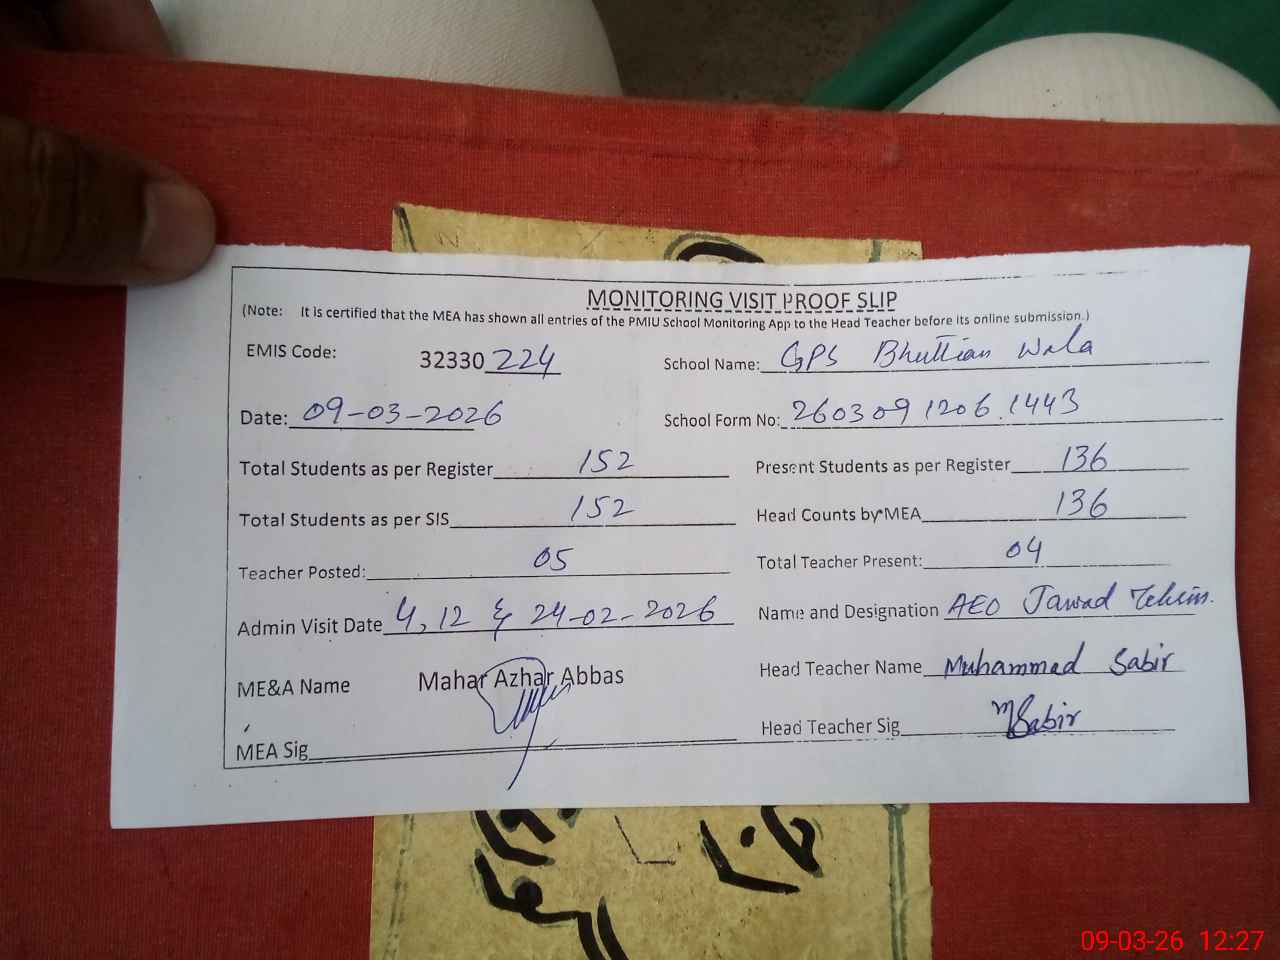 MONITORING VISIT PROOF SLIP
(Note: It is certified that the MEA has shown all entries of the PMIU School Monitoring App to the Head Teacher before its online submission.)
EMIS Code: 32330 224 School Name: GPS Bhuttian Wala
Date: 09-03-2026 School Form No: 2603091206.1443
Total Students as per Register 152 Present Students as per Register 136
Total Students as per SIS 152 Head Counts by MEA 136
Teacher Posted: 05 Total Teacher Present: 04
Admin Visit Date 4, 12 & 24-02-2026 Name and Designation AEO Jawad
ME&A Name Mahar Azhar Abbas Head Teacher Name Muhammad Sabir
MEA Sig Head Teacher Sig MSabir
09-03-26 12:27